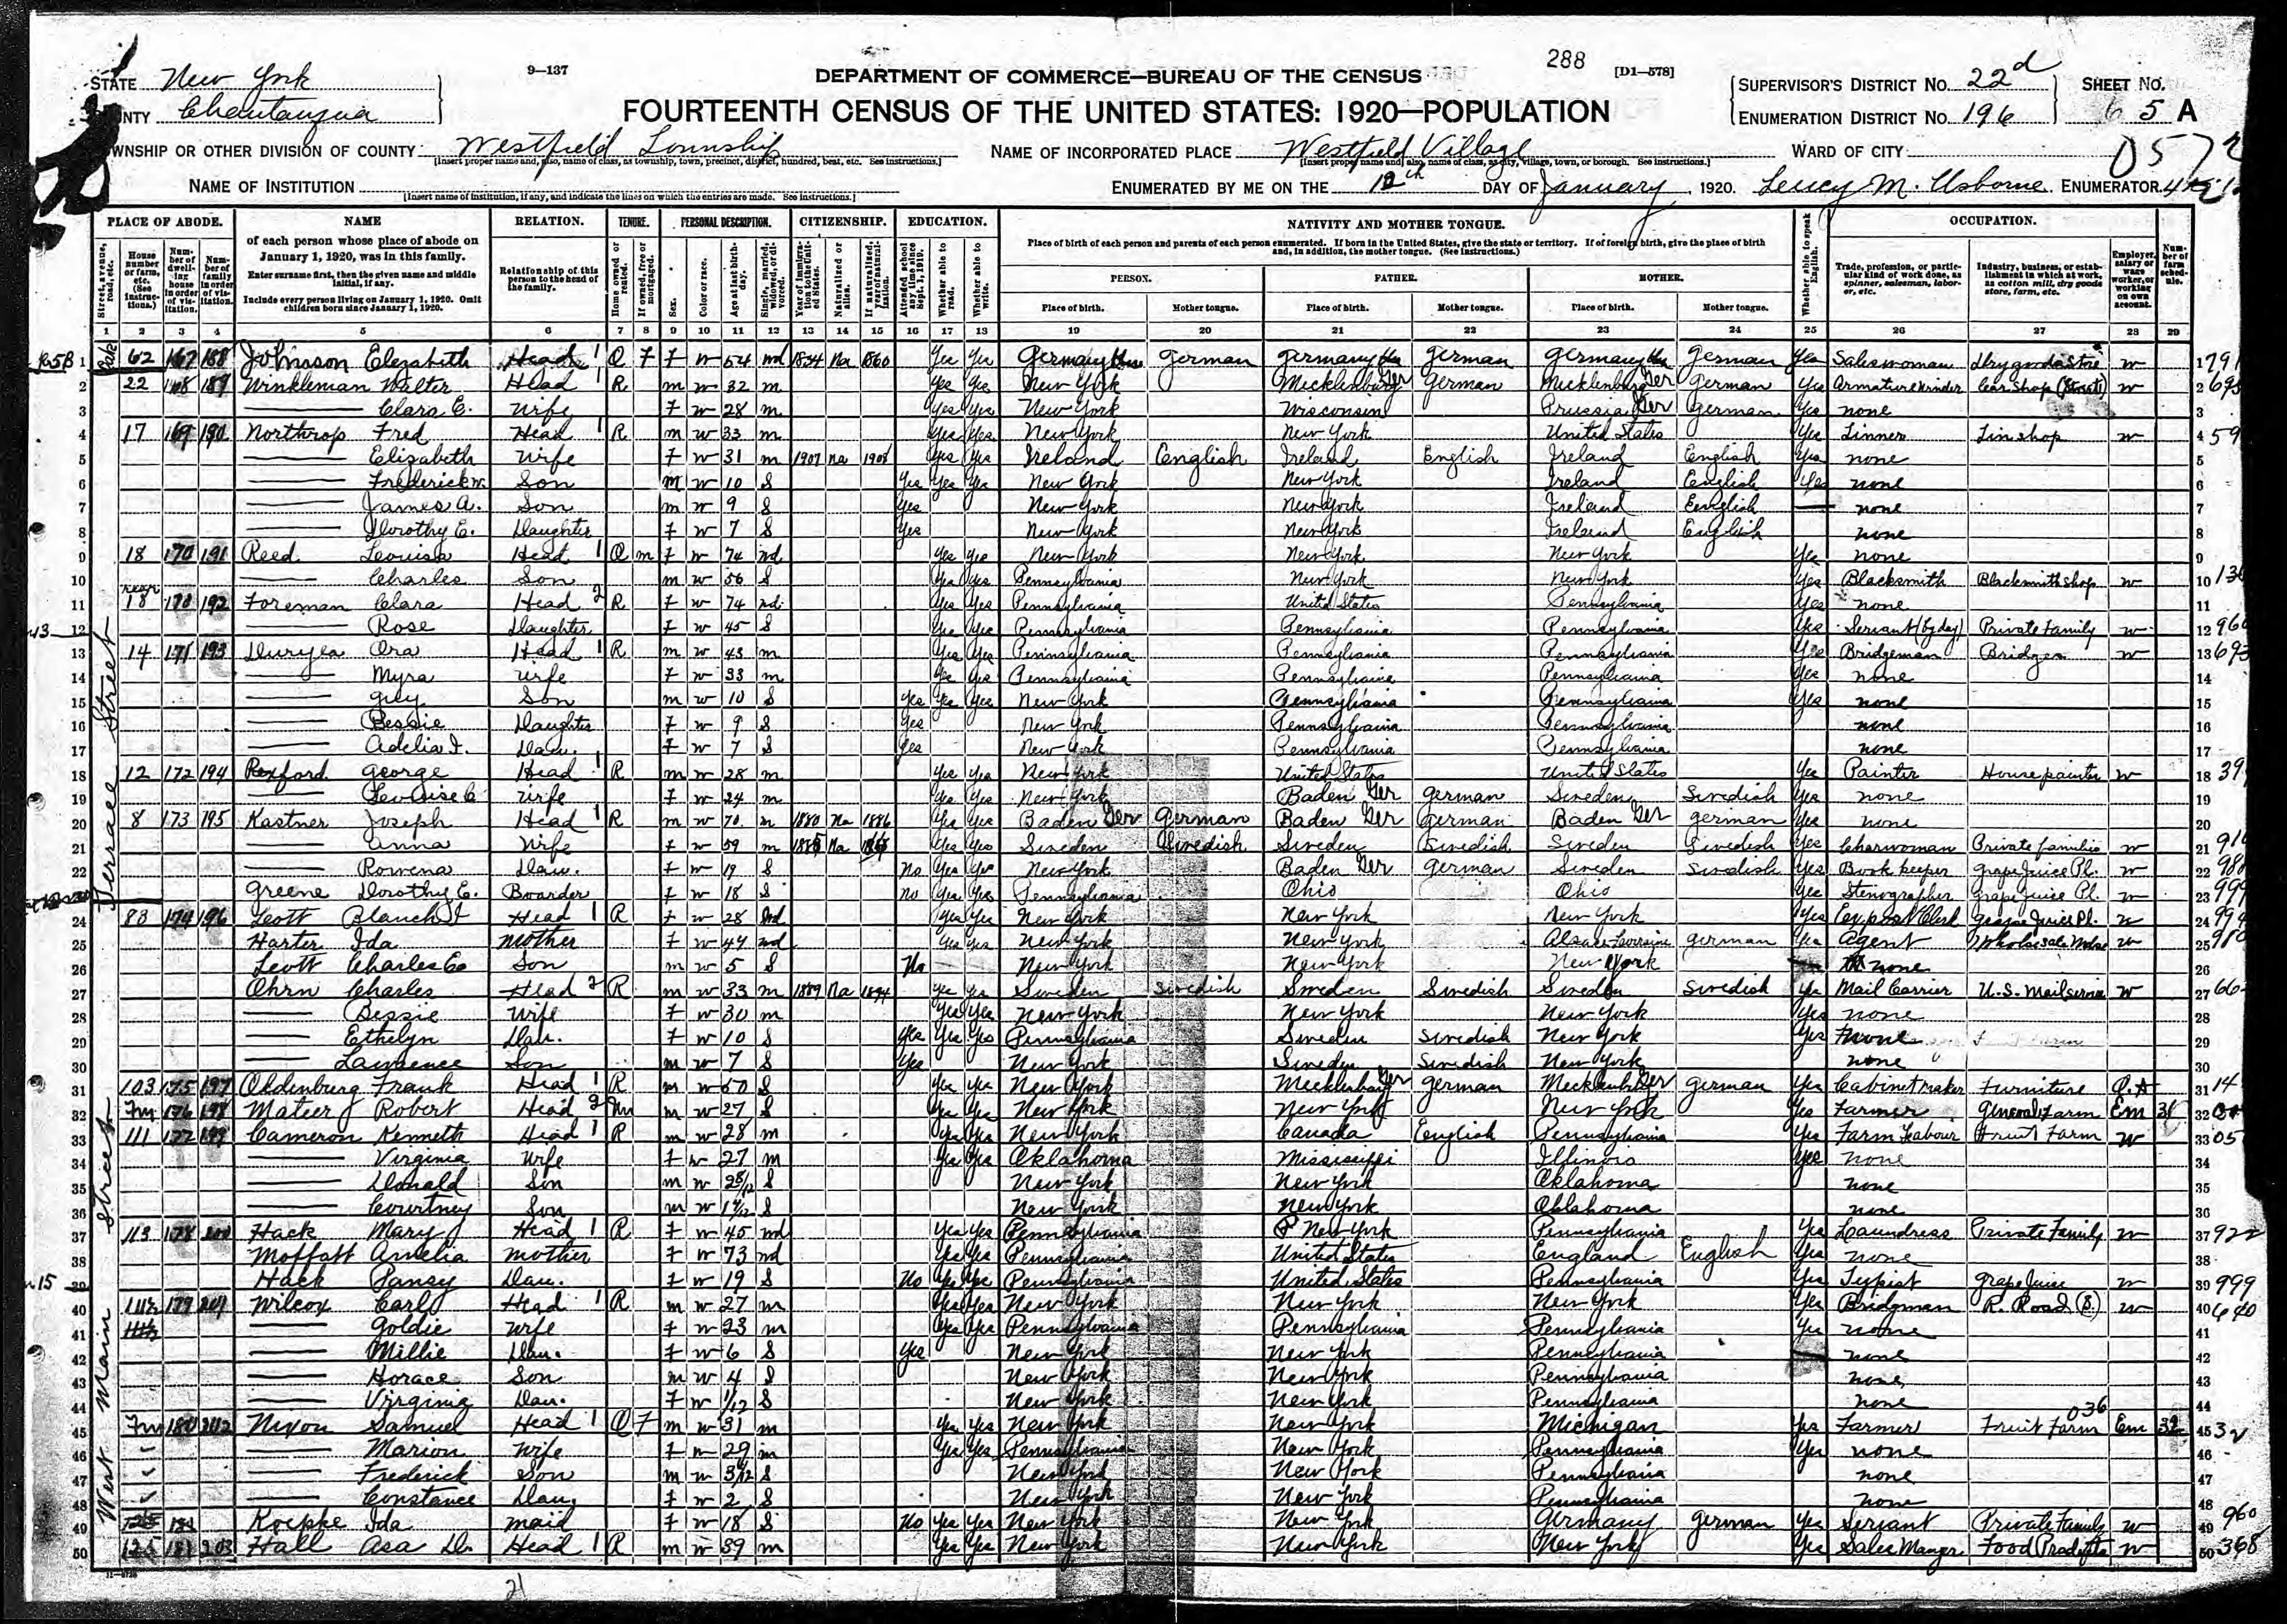 288
9—137 DEPARTMENT OF COMMERCE—BUREAU OF THE CENSUS [D1—578]
STATE New York
COUNTY Chautauqua
FOURTEENTH CENSUS OF THE UNITED STATES: 1920—POPULATION
SUPERVISOR'S DISTRICT No. 22d SHEET No.
ENUMERATION DISTRICT No. 196 5 A
TOWNSHIP OR OTHER DIVISION OF COUNTY Westfield Township NAME OF INCORPORATED PLACE Westfield Village WARD OF CITY
[Insert proper name and, also, name of class, as township, town, precinct, district, hundred, beat, etc. See instructions.] [Insert proper name and, also, name of class, as city, village, town, or borough. See instructions.]
NAME OF INSTITUTION ENUMERATED BY ME ON THE 12th DAY OF January, 1920. Leucy M. Usborne. ENUMERATOR.
[Insert name of institution, if any, and indicate the lines on which the entries are made. See instructions.]
PLACE OF ABODE. NAME RELATION. TENURE. PERSONAL DESCRIPTION. CITIZENSHIP. EDUCATION. NATIVITY AND MOTHER TONGUE. OCCUPATION.
of each person whose place of abode on January 1, 1920, was in this family.
Enter surname first, then the given name and middle initial, if any.
Include every person living on January 1, 1920. Omit children born since January 1, 1920.
Relationship of this person to the head of the family.
Place of birth of each person and parents of each person enumerated. If born in the United States, give the state or territory. If of foreign birth, give the place of birth and, in addition, the mother tongue. (See instructions.)
PERSON. FATHER. MOTHER.
Place of birth. Mother tongue. Place of birth. Mother tongue. Place of birth. Mother tongue.
1 2 3 4 5 6 7 8 9 10 11 12 13 14 15 16 17 18 19 20 21 22 23 24 25 26 27 28 29
1 62 167 188 Johnson Elizabeth Head O F F W 54 wd Na 1860 Yes Yes Germany German Germany German Germany German Yes Saleswoman Dry goods Store W
2 22 168 189 Winkleman Walter Head R M W 32 M Yes Yes New York Mecklenburg Ger German Mecklenburg Ger German Yes Armature winder Car Shop (Street) W
3 Clara E. Wife F W 28 M Yes Yes New York Wisconsin Prussia Ger German Yes none
4 17 169 190 Northrop Fred Head R M W 33 M Yes Yes New York New York United States Yes Tinner Tin shop W
5 Elizabeth Wife F W 31 M 1907 Na 1908 Yes Yes Ireland English Ireland English Ireland English Yes none
6 Frederick W. Son M W 10 S Yes Yes Yes New York New York Ireland English Yes none
7 James A. Son M W 9 S Yes New York New York Ireland English none
8 Dorothy E. Daughter F W 7 S Yes New York New York Ireland English none
9 18 170 191 Reed Louisa Head O M F W 74 wd Yes Yes New York New York New York Yes none
10 Charles Son M W 56 S Yes Yes Pennsylvania New York New York Yes Blacksmith Blacksmith shop W
11 rear 18 170 192 Foreman Clara Head R F W 74 wd Yes Yes Pennsylvania United States Pennsylvania Yes none
12 Rose Daughter F W 45 S Yes Yes Pennsylvania Pennsylvania Pennsylvania Yes Servant (by day) Private Family W
13 14 171 193 Duryea Ora Head R M W 43 M Yes Yes Pennsylvania Pennsylvania Pennsylvania Yes Bridgeman Bridges W
14 Myra Wife F W 33 M Yes Yes Pennsylvania Pennsylvania Pennsylvania Yes none
15 Guy Son M W 10 S Yes Yes Yes New York Pennsylvania Pennsylvania Yes none
16 Bessie Daughter F W 9 S Yes New York Pennsylvania Pennsylvania none
17 Adelia I. Dau. F W 7 S Yes New York Pennsylvania Pennsylvania none
18 12 172 194 Rexford George Head R M W 28 M Yes Yes New York United States United States Yes Painter House painter W
19 Louise C Wife F W 24 M Yes Yes New York Baden Ger German Sweden Swedish Yes none
20 8 173 195 Kastner Joseph Head R M W 70 M 1880 Na 1886 Yes Yes Baden Ger German Baden Ger German Baden Ger German Yes none
21 Anna Wife F W 59 M Na Yes Yes Sweden Swedish Sweden Swedish Sweden Swedish Yes Charwoman Private families W
22 Rowena Dau. F W 19 S No Yes Yes New York Baden Ger German Sweden Swedish Yes Book keeper Grape Juice Pl. W
23 Greene Dorothy E. Boarder F W 18 S No Yes Yes Pennsylvania Ohio Ohio Yes Stenographer Grape juice Pl. W
24 83 174 196 Scott Blanch I Head R F W 28 Wd Yes Yes New York New York New York Yes Export Clerk Grape Juice Pl. W
25 Harter Ida Mother F W 47 wd Yes Yes New York New York Alsace-Lorraine German Yes Agent Wholesale Mdse W
26 Scott Charles Son M W 5 S No New York New York New York none
27 Ohrn Charles Head R M W 33 M 1889 Na 1894 Yes Yes Sweden Swedish Sweden Swedish Sweden Swedish Yes Mail Carrier U.S. Mail service W
28 Bessie Wife F W 30 M Yes Yes New York New York New York Yes none
29 Ethelyn Dau. F W 10 S Yes Yes Yes Pennsylvania Sweden Swedish New York Yes none
30 Lawrence Son M W 7 S Yes New York Sweden Swedish New York none
31 103 175 197 Oldenburg Frank Head R M W 50 S Yes Yes New York Mecklenburg Ger German Mecklenburg Ger German Yes Cabinet maker Furniture O.A
32 Fm 176 198 Mateer Robert Head M W 27 S Yes Yes New York New York New York Yes Farmer General Farm Em 31
33 111 177 199 Cameron Kenneth Head R M W 28 M Yes Yes New York Canada English Pennsylvania Yes Farm Labour Fruit Farm W
34 Virginia Wife F W 27 M Yes Yes Oklahoma Mississippi Illinois Yes none
35 Donald Son M W S New York New York Oklahoma none
36 Courtney Son M W S New York New York Oklahoma none
37 113 178 200 Hack Mary Head R F W 45 wd Yes Yes Pennsylvania New York Pennsylvania Yes Laundress Private Family W
38 Moffatt Amelia Mother F W 73 wd Yes Yes Pennsylvania United States England English Yes none
39 Hack Pansy Dau. F W 19 S No Yes Yes Pennsylvania United States Pennsylvania Yes Typist Grape Juice W
40 111½ 179 201 Wilcox Earl Head R M W 27 M Yes Yes New York New York New York Yes Bridgman R. Road (S.) W
41 Goldie Wife F W 23 M Yes Yes Pennsylvania Pennsylvania Pennsylvania Yes none
42 Millie Dau. F W 6 S Yes New York New York Pennsylvania none
43 Horace Son M W 4 S New York New York Pennsylvania none
44 Virginia Dau. F W 1/12 S New York New York Pennsylvania none
45 Fm 180 202 Nixon Samuel Head O F M W 31 M Yes Yes New York New York Michigan Yes Farmer Fruit Farm Em 32
46 Marion Wife F W 29 M Yes Yes Pennsylvania New York Pennsylvania Yes none
47 Frederick Son M W S New York New York Pennsylvania none
48 Constance Dau. F W 2 S New York New York Pennsylvania none
49 Koepke Ida Maid F W 18 S No Yes Yes New York New York Germany German Yes Servant Private Family W
50 125 181 203 Hall Asa D. Head R M W 39 M Yes Yes New York New York New York Yes Sales Manger Food Products W
Terrace Street
West Main Street